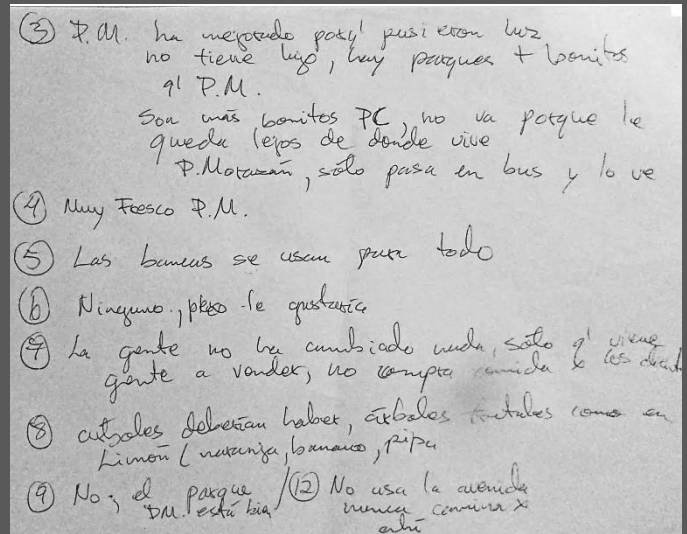 ③ P.M. ha mejorado porq' pusieron luz
no tiene lago, hay parques + bonitos
q' P.M.
Son más bonitos PC, no va porque le
queda lejos de donde vive
P. Morazán, sólo pasa en bus y lo ve
④ Muy Fresco P.M.
⑤ Las bancas se usan para todo
⑥ Ninguno, pero le gustaría
⑦ La gente no ha cambiado nada, sólo q' viene
gente a vender, no compra comida
⑧ arboles deberían haber, árboles frutales como en
Limón (naranja, banano, pipa
⑨ No, el parque / ⑫ No usa la avenida
P.M. está bien nunca camina x
ahí